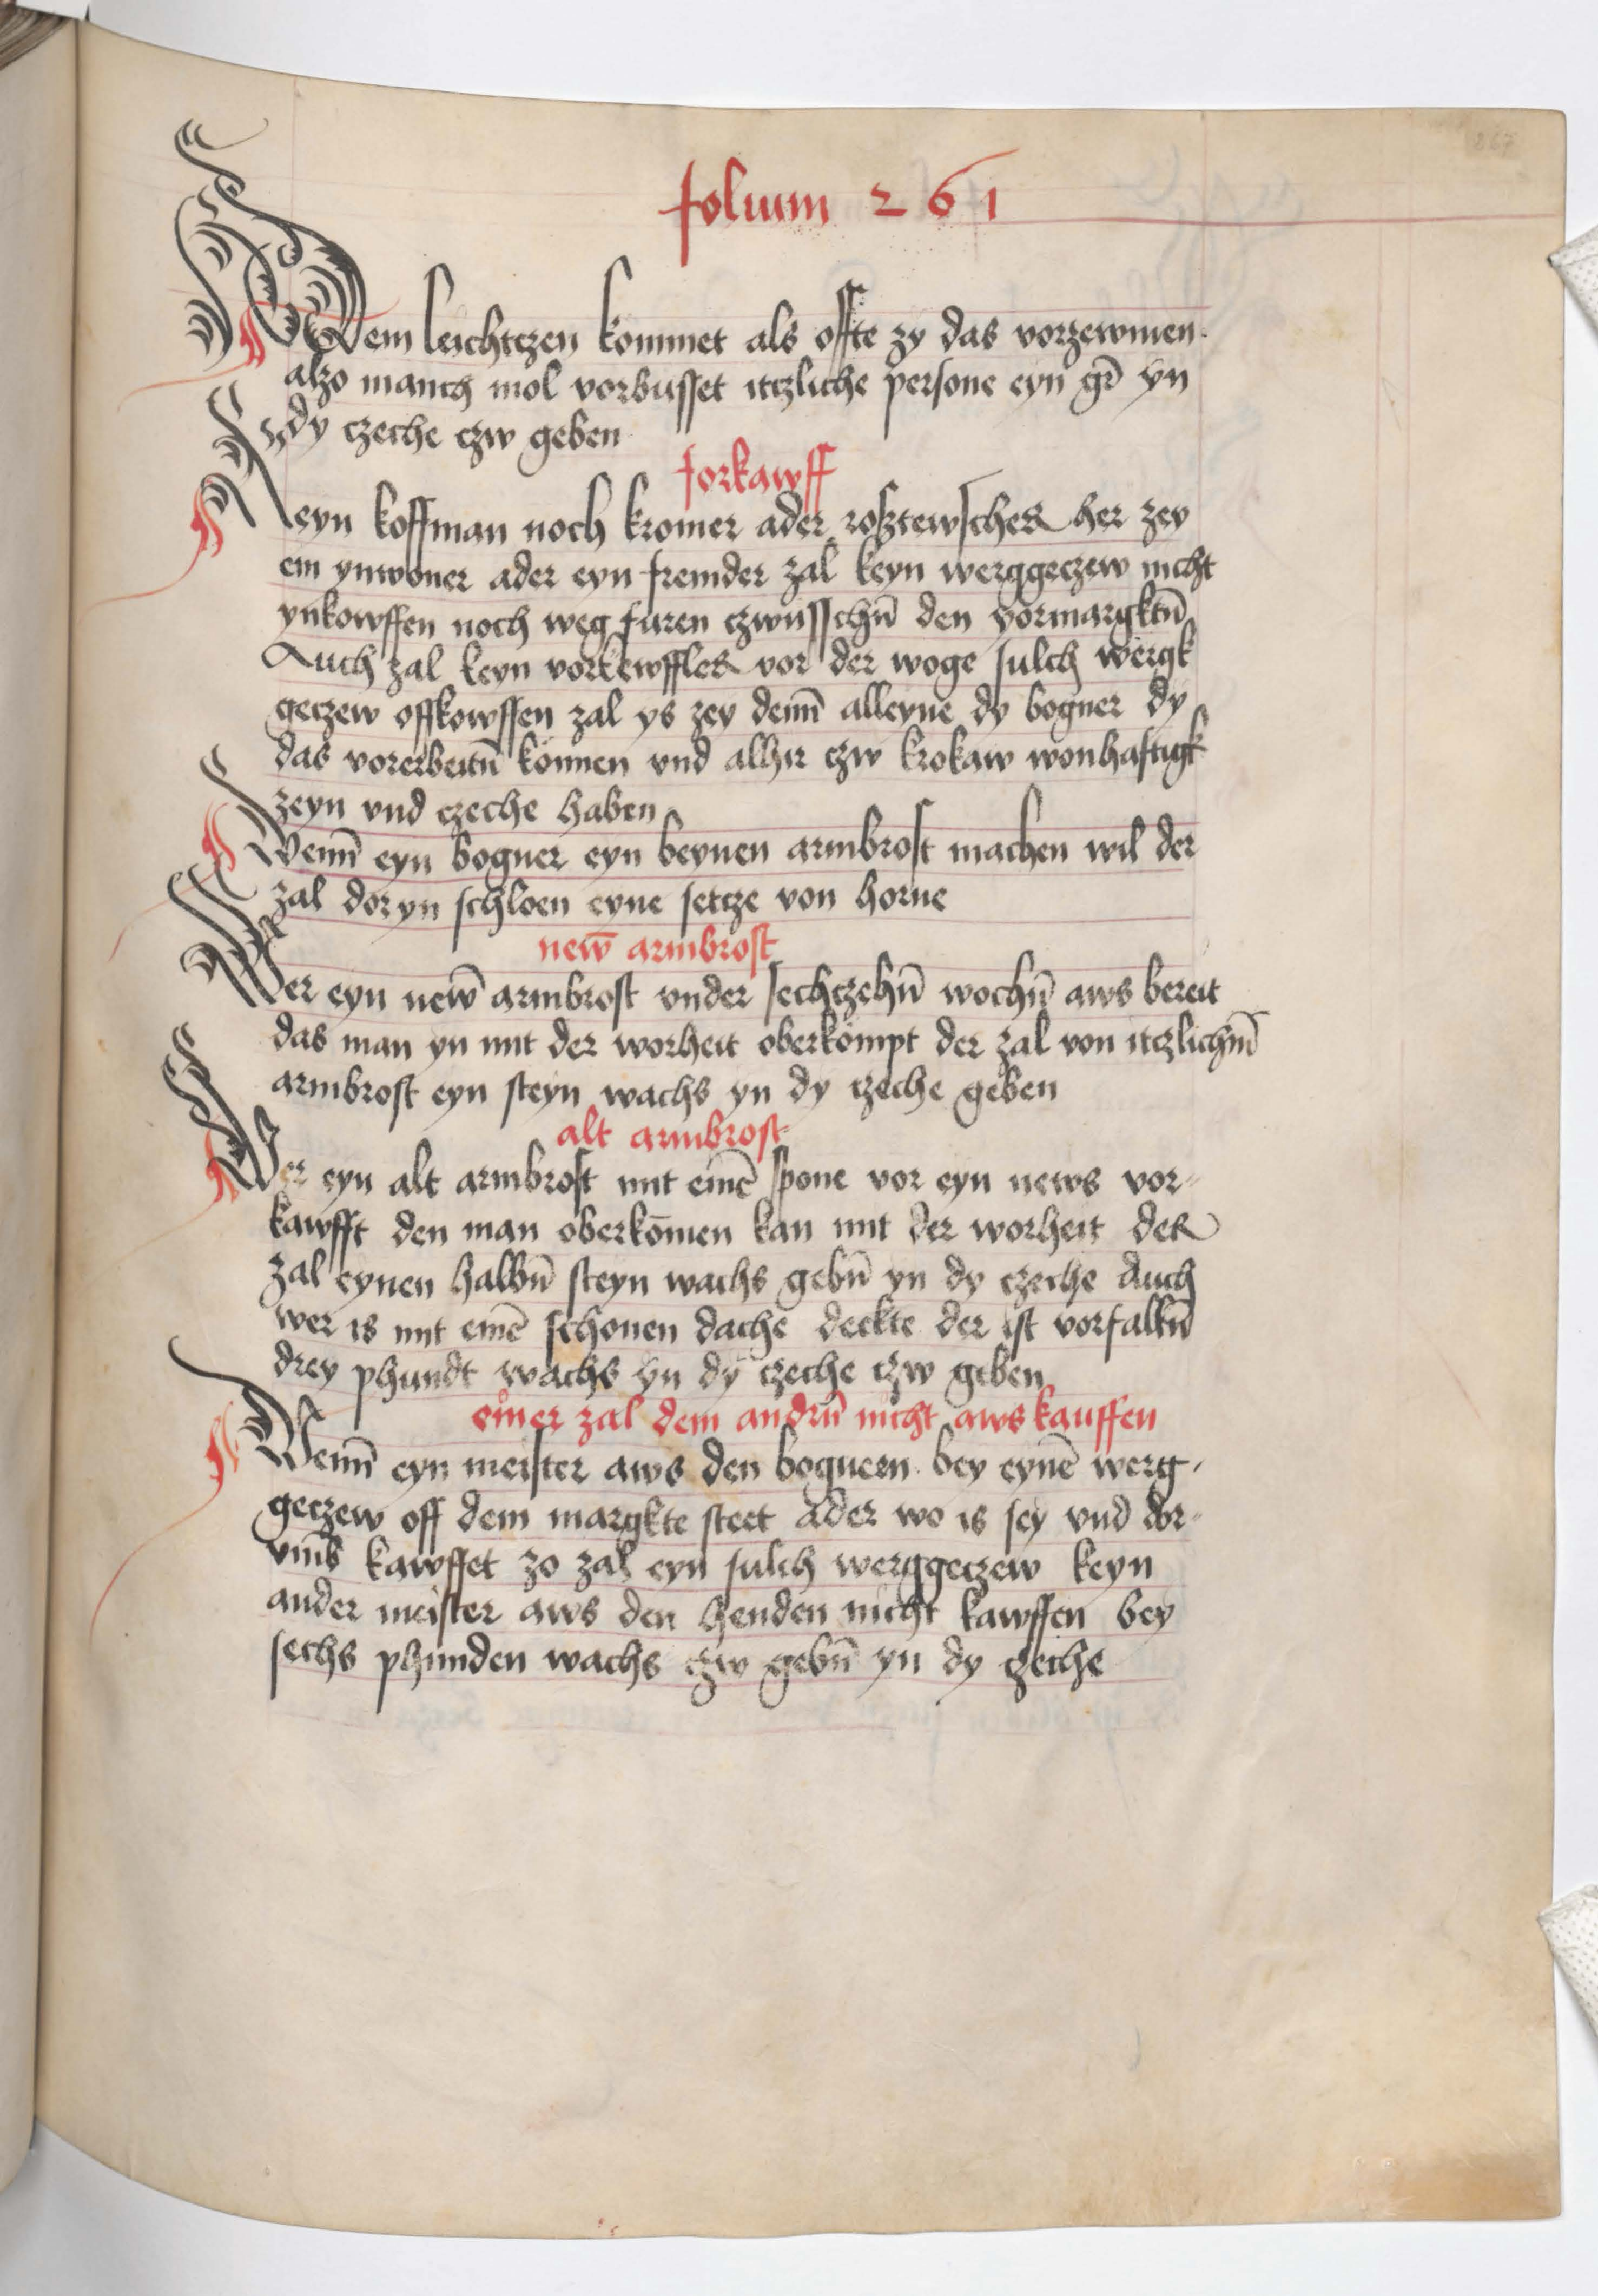 folium 261
Dem leichtczen kommet als offte zy das vorzewmen
alzo manch mol vorbusset itzliche persone eyn gr̄ yn
dy czeche czw geben
forkawff
Keyn koffman noch kromer ader rosztewscher her zey
ein ynwoner ader eyn fremder zal keyn werggeczew nicht
ynkowffen noch weg furen czwusschn̄ den yormargktn̄
Auch zal keyn vorkewffler vor der woge sulch wergk
geczew offkowffen zal ys zey denn̄ alleyne dy bogner dy
das vorerbeitn̄ konnen vnd alhir czw krokaw wonhaftigk
zeyn vnd czeche haben
Wenn̄ eyn bogner eyn beynen armbrost machen wil der
zal doryn schloen eyne setcze von horne
new̄ armbrost
Wer eyn new̄ armbrost vnder sechczehn̄ wochn̄ aws bereit
das man yn mit der worheit oberkompt der zal von itczlichm̄
armbrost eyn steyn wachs yn dy czeche geben
alt armbrost
Wer eyn alt armbrost mit einē spone vor eyn news vor-
kawfft den man oberkōmen kan mit der worheit der
zal eynen halbn̄ steyn wachs gebn̄ yn dy czeche Auch
wer is mit einē schonen dache deckte der ist vorfalln̄
drey phundt wachs yn dy czeche czw geben
einer zal dem andrn̄ nicht aws kauffen
Wenn̄ eyn meister aws den bognern bey eynē werg-
geczew off dem margkte steet ader wo is sey vnd dor-
vmb kawffet zo zal eyn sulch werggeczew keyn
ander meister aws den henden nicht kawffen bey
sechs phunden wachs czw gebn̄ yn dy czeche